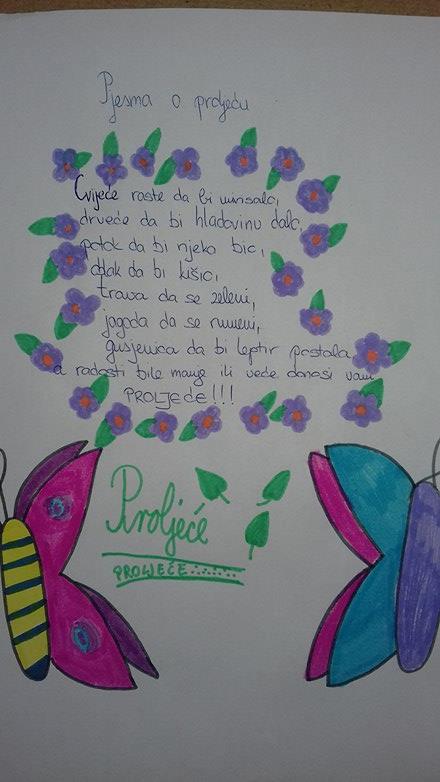 Pjesma o proljeću
Cvijeće raste da bi mirisalo,
drveće da bi hladovinu dalo,
potok da bi rijeka bio,
oblak da bi kišio,
trava da se zeleni,
jagoda da se rumeni,
gusjenica da bi leptir postala,
a radosti bile manje ili veće donosi vam
PROLJEĆE!!!
Proljeće
PROLJEĆE.......